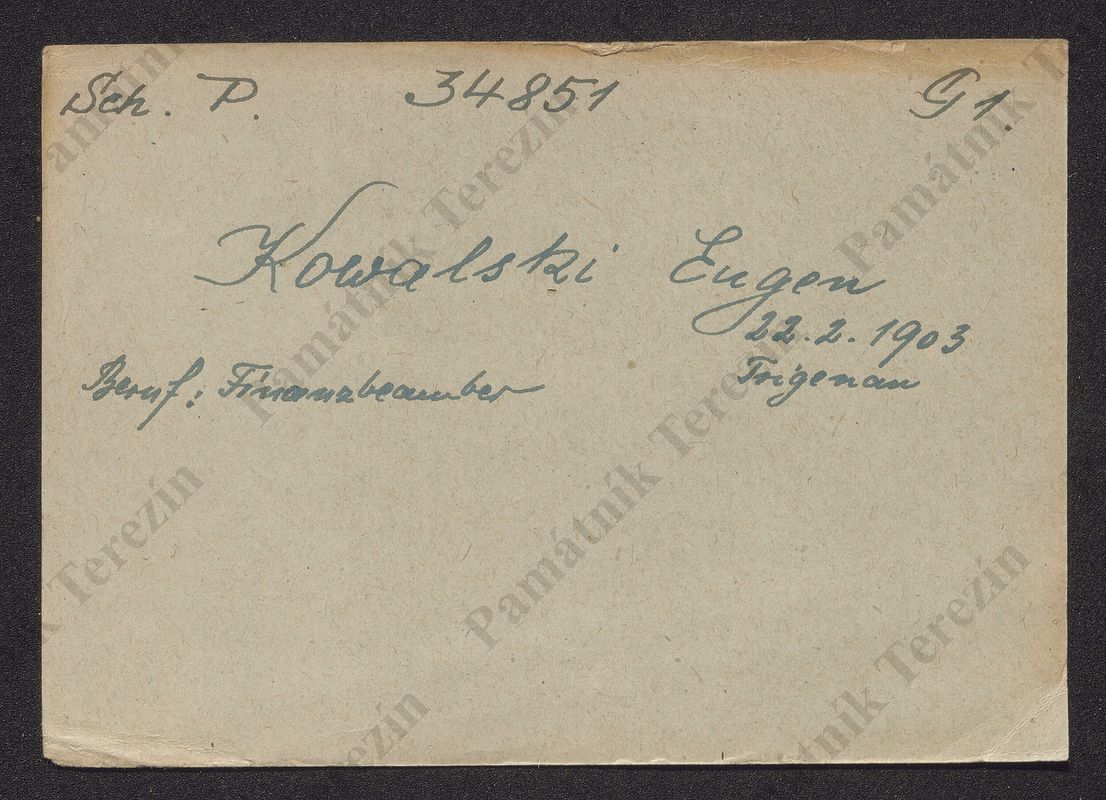 Sch. P. 34851 G 1.
Kowalski Eugen
22.2.1903
Beruf: Finanzbeamter Trigenau
Památník Terezín
Památník Terezín
Památník Terezín
Památník Terezín
Terezín